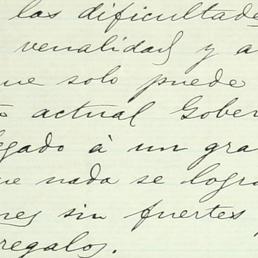 las dificultades
venalidad y a
que solo puede
actual Gober
legado à un gra
ue nada se logra
nes sin fuertes
regalos.